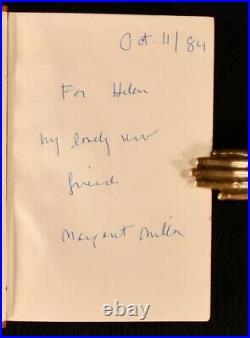 Oct. 11/84
For Helen
my lovely new
friend
Margaret Millar